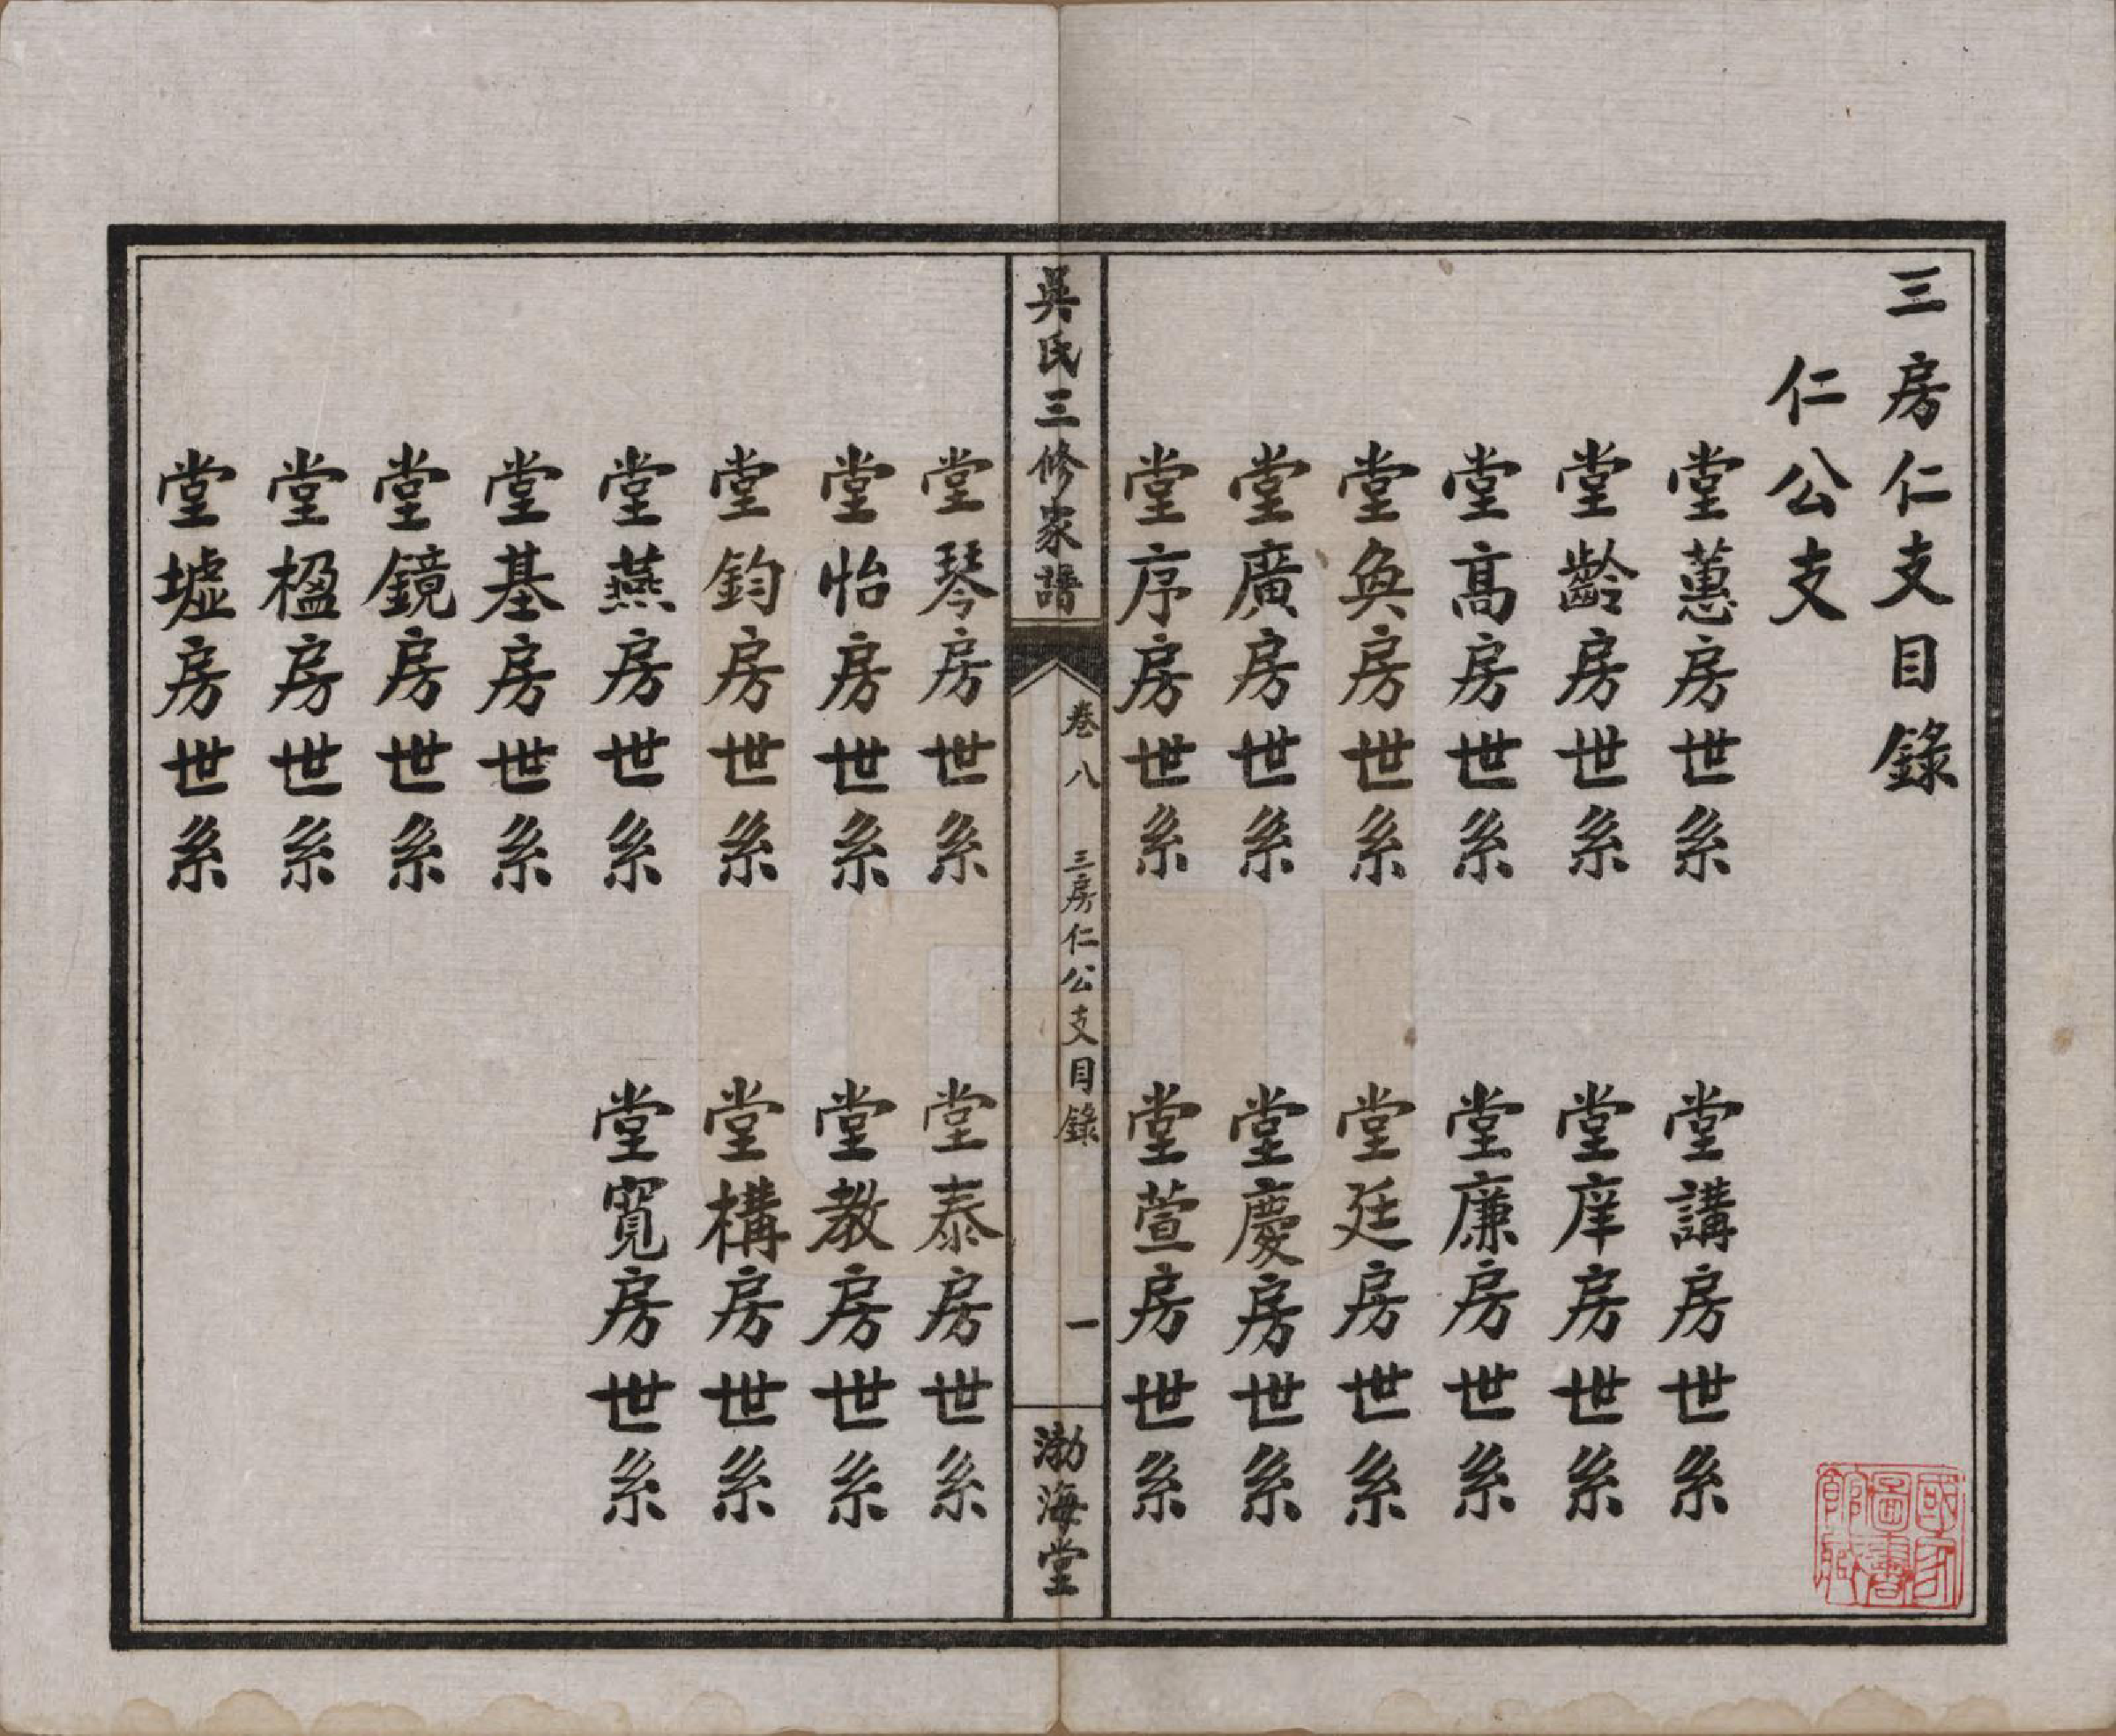 三房仁支目錄
仁公支
堂蕙房世系
堂講房世系
堂齡房世系
堂庠房世系
堂高房世系
堂廉房世系
堂奐房世系
堂廷房世系
堂廣房世系
堂慶房世系
堂序房世系
堂萱房世系
吳氏三修家譜
卷八
三房仁公支目錄
一
渤海堂
堂琴房世系
堂泰房世系
堂怡房世系
堂教房世系
堂鈞房世系
堂構房世系
堂燕房世系
堂寬房世系
堂基房世系
堂鏡房世系
堂楹房世系
堂墟房世系
國家
圖書
館藏